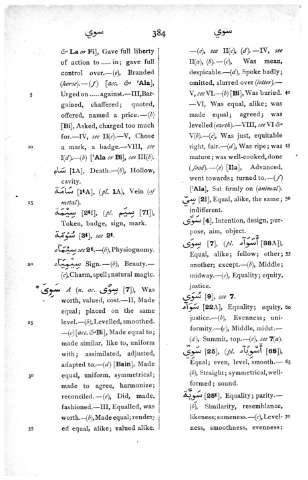 سوي 384 سوي
& La or Fi], Gave full liberty
of action to — in; gave full
control over.—(e), Branded
(horse).—(f) [acc. & 'Ala],
5 Urged on ..... against.—III, Bar-
gained, chaffered; quoted,
offered, named a price.—(b)
[Bi], Asked, charged too much
for.—IV, see II(c).—V, Chose
10 a mark, a badge.—VIII, see
I(d).—(b) ['Ala or Bi], see III(b).
[1A], Death.—(b), Hollow,
cavity.
سَامَة [1tA], (pl. 1A), Vein (of
15 metal).
سِيْمَة [2tI], (pl. سِيَم [7I]),
Token, badge, sign, mark.
سُوْمَة [3t], see 2t.
see 2t.—(b), Physiognomy.
20 Sign.—(b), Beauty.—
(c), Charm, spell; natural magic.
A (n. ac. [7]), Was
worth, valued, cost.—II, Made
equal; placed on the same
25 level.—(b), Levelled, smoothed.
—(c) [acc. & Bi], Made equal to;
made similar, like to, uniform
with; assimilated, adjusted,
adapted to.—(d) [Bain], Made
30 equal, uniform, symmetrical;
made to agree, harmonize;
reconciled.—(e), Did, made,
fashioned.—III, Equalled, was
worth.—(b), Made equal; render-
35 ed equal, alike; valued alike.
—(c), see II(c), (d).—IV, see
II(a), (b).—(c), Was mean,
despicable.—(d), Spoke badly;
omitted, slurred over (letter).—
V, see VI.—(b) [Bi], Was buried. 40
—VI, Was equal, alike; was
made equal; agreed; was
levelled (earth).—VIII, see VI &
V(b).—(c), Was just, equitable
right, fair.—(d), Was ripe; was 45
mature; was well-cooked, done
(food).—(e) [Ila], Advanced,
went towards; turned to.—(f)
['Ala], Sat firmly on (animal).
[2I], Equal, alike, the same; 50
indifferent.
[4], Intention, design, pur-
pose, aim, object.
[7], (pl. [38A]),
Equal, alike; fellow; other; 55
another; except.—(b), Middle;
midway.—(c), Equality; equity,
justice.
[9], see 7.
[22A], Equality; equity, 60
justice.—(b), Evenness; uni-
formity.—(c), Middle, midst.—
(d), Summit, top.—(e), see 7(a).
[25], (pl. [68]),
Equal; even, level, smooth.— 65
(b), Straight; symmetrical, well-
formed; sound.
[25t], Equality; parity.—
(b), Similarity, resemblance,
likeness; sameness.—(c), Level- 70
ness, smoothness, evenness;